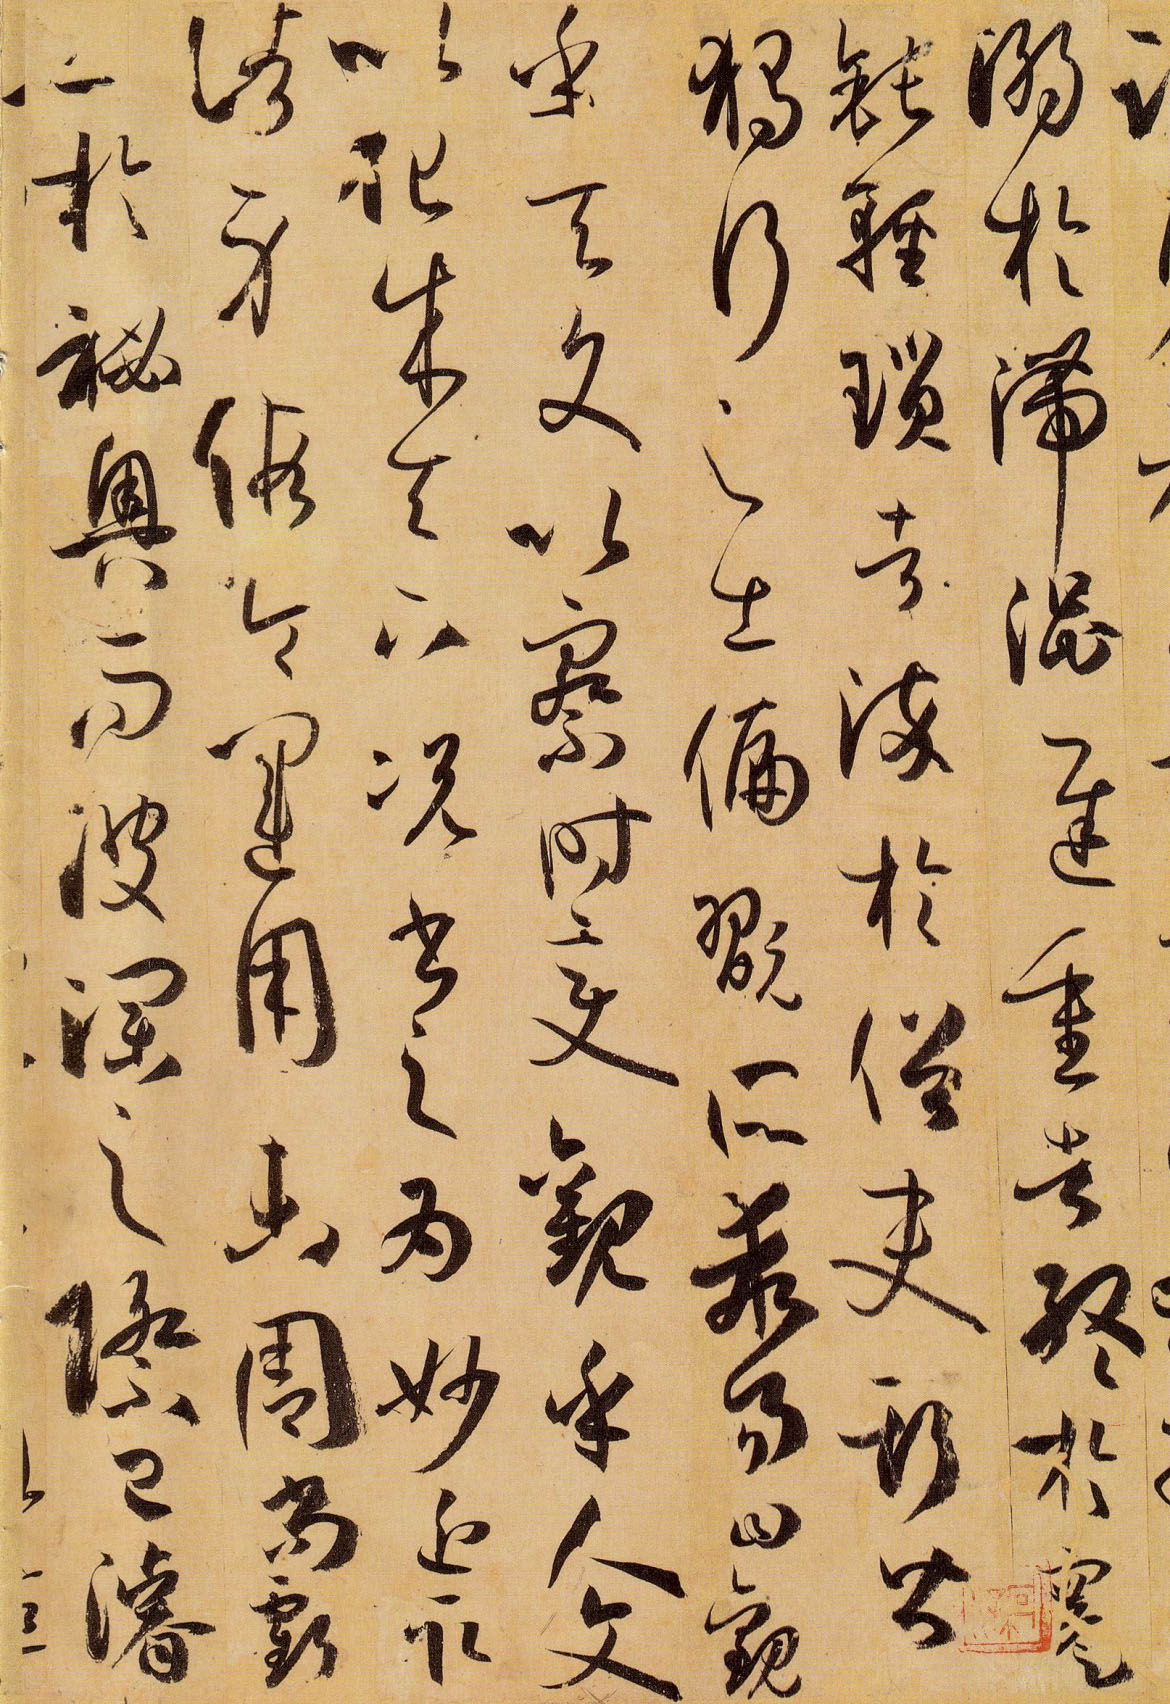 溺於滯涩遲重者終於蹇
鈍輕瑣者染於俗吏斯皆
獨行之士偏翫所乖易曰觀
乎天文以察時變觀乎人文
以化成天下況書之為妙近取
諸身假令運用未周尚虧
工於祕奧而波瀾之際已濬